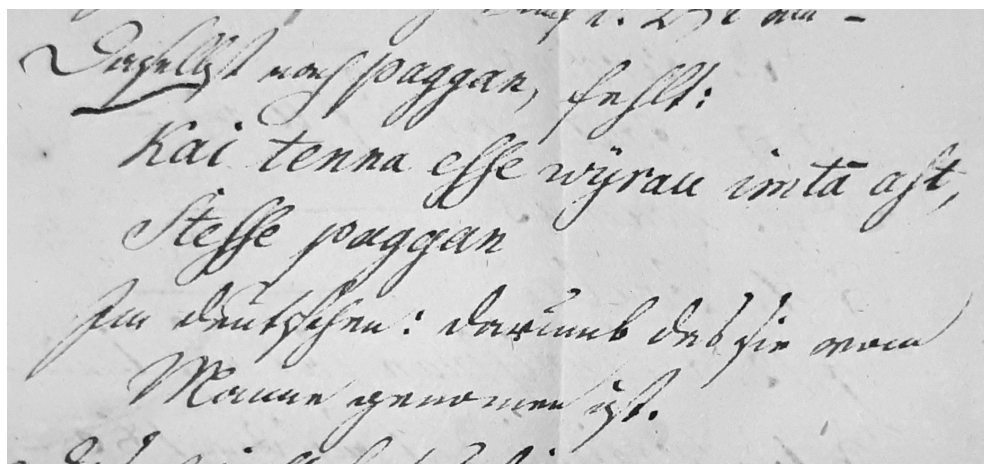 Daselbst nach paggan, fehlt:
Kai tenna esse wÿrau imtā ast,
Stesse paggan
Im deutschen: darumb das sie vom
Manne genomen ist.